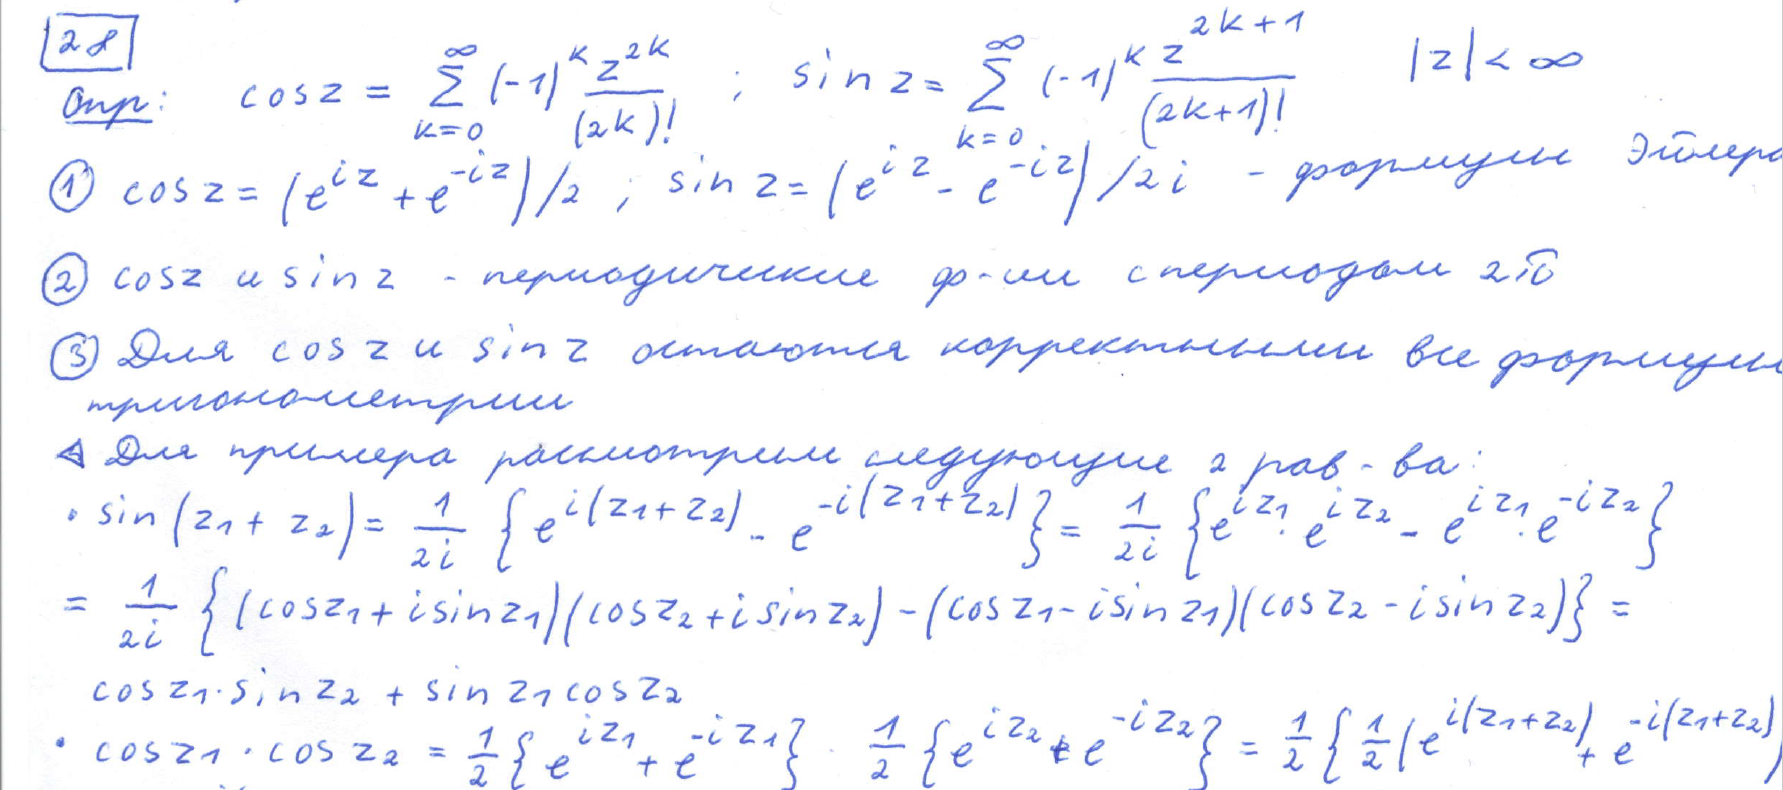 28
Опр: cos z = ∑_{k=0}^{∞} (-1)^k z^{2k}/(2k)! ; sin z = ∑_{k=0}^{∞} (-1)^k z^{2k+1}/(2k+1)! |z| < ∞
① cos z = (e^{iz} + e^{-iz})/2 ; sin z = (e^{iz} - e^{-iz})/2i - формулы Эйлера
② cos z и sin z - периодические ф-ии с периодом 2π
③ Для cos z и sin z остаются корректными все формулы
тригонометрии
◁ Для примера рассмотрим следующие 2 рав-ва:
• sin(z₁ + z₂) = 1/2i {e^{i(z₁+z₂)} - e^{-i(z₁+z₂)}} = 1/2i {e^{iz₁} · e^{iz₂} - e^{iz₁} · e^{-iz₂}}
= 1/2i {(cos z₁ + i sin z₁)(cos z₂ + i sin z₂) - (cos z₁ - i sin z₁)(cos z₂ - i sin z₂)} =
cos z₁ · sin z₂ + sin z₁ cos z₂
• cos z₁ · cos z₂ = 1/2 {e^{iz₁} + e^{-iz₁}} · 1/2 {e^{iz₂} + e^{-iz₂}} = 1/2 {1/2 (e^{i(z₁+z₂)} + e^{-i(z₁+z₂)})